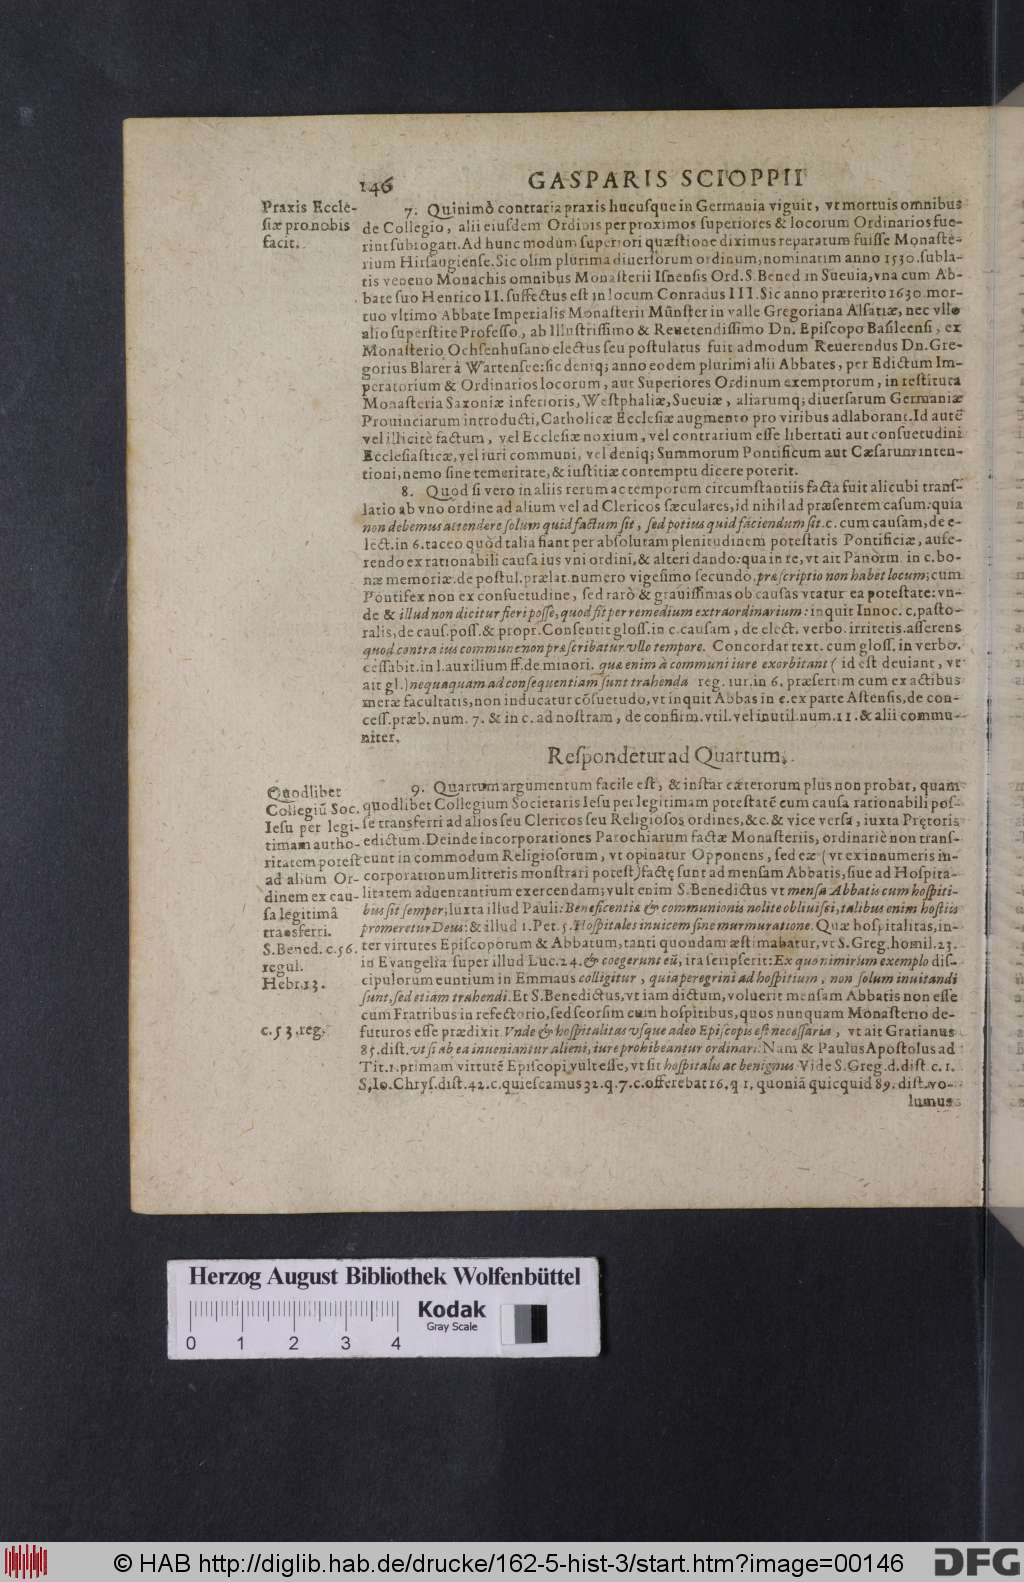 146 GASPARIS SCIOPPII
Praxis Eccle-
siæ pro nobis
facit.
7. Quinimò contraria praxis hucusque in Germania viguit, vt mortuis omnibus
de Collegio, alii eiusdem Ordinis per proximos superiores & locorum Ordinarios fue-
rint subrogati. Ad hunc modum superiori quæstione diximus reparatum fuisse Monaste-
rium Hirsaugiense. Sic olim plurima diuersorum ordinum, nominatim anno 1530. subla-
tis veneno Monachis omnibus Monasterii Isnensis Ord. S. Bened in Sueuia, vna cum Ab-
bate suo Henrico II. suffectus est in locum Conradus III. Sic anno præterito 1630 mor-
tuo vltimo Abbate Imperialis Monasterii Münster in valle Gregoriana Alsatiæ, nec vllo
alio superstite Professo, ab Illustrissimo & Reuerendissimo Dn. Episcopo Basileensi, ex
Monasterio Ochsenhusano electus seu postulatus fuit admodum Reuerendus Dn. Gre-
gorius Blarer à Wartensee: sic deniq; anno eodem plurimi alii Abbates, per Edictum Im-
peratorium & Ordinarios locorum, aut Superiores Ordinum exemptorum, in restituta
Monasteria Saxoniæ inferioris, Westphaliæ, Sueuiæ, aliarumq; diuersarum Germaniæ
Prouinciarum introducti, Catholicæ Ecclesiæ augmento pro viribus adlaborant. Id autẽ
vel illicitè factum, vel Ecclesiæ noxium, vel contrarium esse libertati aut consuetudini
Ecclesiasticæ, vel iuri communi, vel deniq; Summorum Pontificum aut Cæsarum inten-
tioni, nemo sine temeritate, & iustitiæ contemptu dicere poterit.
8. Quod si vero in aliis rerum ac temporum circumstantiis facta fuit alicubi trans-
latio ab vno ordine ad alium vel ad Clericos sæculares, id nihil ad præsentem casum: quia
non debemus attendere solum quid factum sit, sed potius quid faciendum sit. c. cum causam, de e-
lect. in 6. taceo quòd talia fiant per absolutam plenitudinem potestatis Pontificiæ, aufe-
rendo ex rationabili causa ius vni ordini, & alteri dando: qua in re, vt ait Panorm. in c. bo-
næ memoriæ. de postul. prælat. numero vigesimo secundo. præscriptio non habet locum; cum
Pontifex non ex consuetudine, sed rarò & grauissimas ob causas vtatur ea potestate: vn-
de & illud non dicitur fieri posse, quod fit per remedium extraordinarium: inquit Innoc. c. pasto-
ralis, de caus. poss. & propr. Consentit gloss. in c. causam, de elect. verbo. irritetis. asserens
quod contra ius commune non præscribatur vllo tempore. Concordat text. cum gloss. in verbo.
cessabit. in l. auxilium ff. de minori. quæ enim à communi iure exorbitant ( id est deuiant, vt
ait gl.) nequaquam ad consequentiam sunt trahenda reg. iur. in 6. præsertim cum ex actibus
meræ facultatis, non inducatur cõsuetudo, vt inquit Abbas in c. ex parte Astensis, de con-
cess. præb. num. 7. & in c. ad nostram, de confirm. vtil. vel inutil. num. 11. & alii commu-
niter.
Respondetur ad Quartum.
Quodlibet
Collegiũ Soc.
Iesu per legi-
timam autho-
ritatem potest
ad alium Or-
dinem ex cau-
sa legitimâ
transferri.
S. Bened. c. 56.
regul.
Hebr. 13.
c. 53. reg.
9. Quartum argumentum facile est, & instar cæterorum plus non probat, quam
quodlibet Collegium Societatis Iesu per legitimam potestatẽ cum causa rationabili pos-
se transferri ad alios seu Clericos seu Religiosos ordines, &c. & vice versa, iuxta Prętoris
edictum. Deinde incorporationes Parochiarum factæ Monasteriis, ordinariè non trans-
eunt in commodum Religiosorum, vt opinatur Opponens, sed eæ (vt ex innumeris in-
corporationum litteris monstrari potest) factę sunt ad mensam Abbatis, siue ad Hospita-
litatem aduentantium exercendam; vult enim S. Benedictus vt mensa Abbatis cum hospiti-
bus sit semper, Iuxta illud Pauli: Beneficentiæ & communionis nolite obliuisci, talibus enim hostiis
promeretur Deus: & illud 1. Pet. 5. Hospitales inuicem sine murmuratione. Quæ hospitalitas, in-
ter virtutes Episcoporum & Abbatum, tanti quondam æstimabatur, vt S. Greg. homil. 23.
in Evangelia super illud Luc. 24. & coegerunt eũ, ita scripserit: Ex quo nimirum exemplo dis-
cipulorum euntium in Emmaus colligitur, quia peregrini ad hospitium, non solum inuitandi
sunt, sed etiam trahendi. Et S. Benedictus, vt iam dictum, voluerit mensam Abbatis non esse
cum Fratribus in refectorio, sed seorsim cum hospitibus, quos nunquam Monasterio de-
futuros esse prædixit. Vnde & hospitalitas vsque adeo Episcopis est necessaria, vt ait Gratianus
85. dist. vt si ab ea inueniantur alieni, iure prohibeantur ordinari. Nam & Paulus Apostolus ad
Tit. 1. primam virtutẽ Episcopi vult esse, vt sit hospitalis ac benignus. Vide S. Greg. d. dist. c. 1.
S. Io. Chrys. dist. 42. c. quiescamus 32. q. 7. c. offerebat 16. q 1, quoniã quicquid 89. dist. vo-
lumus
Herzog August Bibliothek Wolfenbüttel
Kodak
Gray Scale
0 1 2 3 4
© HAB http://diglib.hab.de/drucke/162-5-hist-3/start.htm?image=00146
DFG